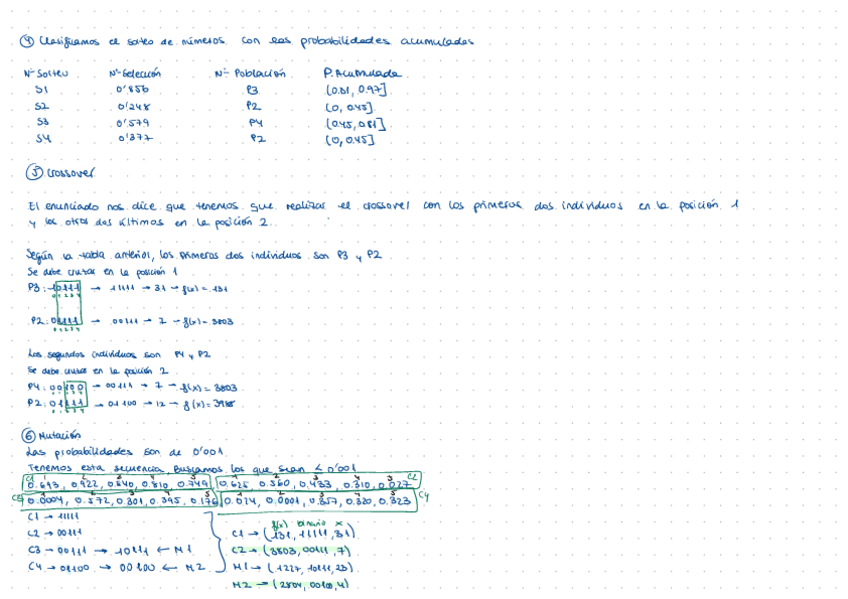 ④ Clasificamos el sorteo de números con las probabilidades acumuladas
Nº Sorteo Nº Selección Nº Población P. Acumulada
S1 0'856 P3 (0.81, 0.97]
S2 0'248 P2 (0, 0.45]
S3 0'579 P4 (0.45, 0.81]
S4 0'377 P2 (0, 0.45]
⑤ Crossover
El enunciado nos dice que tenemos que realizar el crossover con los primeros dos individuos en la posición 1
y los otros dos últimos en la posición 2.
Según la tabla anterior, los primeros dos individuos son P3 y P2
Se debe cruzar en la posición 1
P3: 10111 → 11111 → 31 → f(x) = 131
0 1 2 3 4
P2: 01111 → 00111 → 7 → f(x) = 3803
0 1 2 3 4
Los segundos individuos son P4 y P2
Se debe cruzar en la posición 2
P4: 00100 → 00111 → 7 → f(x) = 3803
P2: 01111 → 01100 → 12 → f(x) = 3988
⑥ Mutación
Las probabilidades son de 0'001
Tenemos esta secuencia. Buscamos los que sean ≤ 0'001
C1 0.693, 0.922, 0.640, 0.310, 0.749, 0.625, 0.360, 0.433, 0.310, 0.027 C2
C3 0.0004, 0.572, 0.301, 0.395, 0.176, 0.014, 0.0001, 0.357, 0.320, 0.323 C4
C1 → 11111
C2 → 00111
C3 → 00111 → 10111 ← M1
C4 → 01100 → 00100 ← M2
f(x) binario x
C1 → (131, 11111, 31)
C2 → (3803, 00111, 7)
M1 → (1227, 10111, 23)
M2 → (2804, 00100, 4)